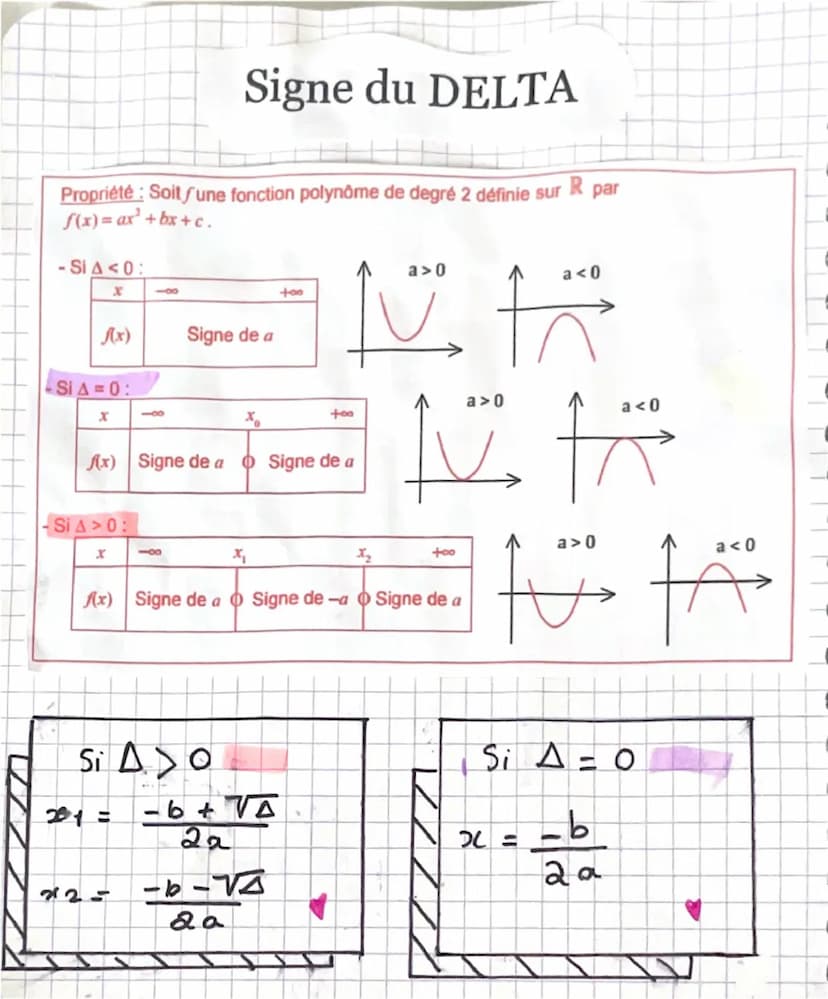 Signe du DELTA
Propriété : Soit f une fonction polynôme de degré 2 définie sur ℝ par
f(x) = ax² + bx + c .
- Si Δ < 0 :
a > 0
a < 0
x −∞ +∞
f(x) Signe de a
- Si Δ = 0 :
a > 0
a < 0
x −∞ x₀ +∞
f(x) Signe de a 0 Signe de a
- Si Δ > 0 :
a > 0
a < 0
x −∞ x₁ x₂ +∞
f(x) Signe de a 0 Signe de −a 0 Signe de a
Si Δ > 0
x1 = (-b + √Δ) / 2a
x2 = (-b - √Δ) / 2a
Si Δ = 0
x = -b / 2a